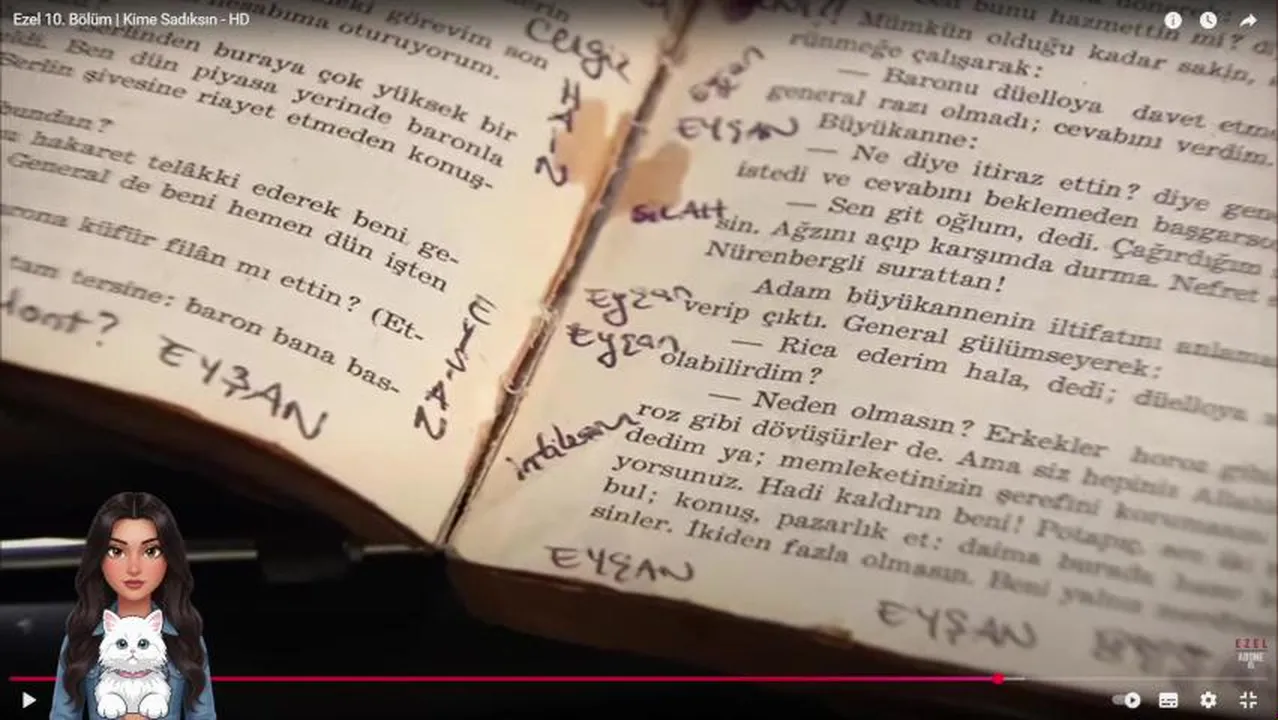 Ezel 10. Bölüm | Kime Sadıksın - HD
görevim son
hesabıma oturuyorum.
Berlinden buraya çok yüksek bir
Ben dün piyasa yerinde baronla
Berlin şivesine riayet etmeden konuş-
bundan?
hakaret telâkki ederek beni ge-
General de beni hemen dün işten
küfür filân mı ettin? (Et-
tam tersine: baron bana bas-
EYŞAN
Cengiz
EYŞAN
bunu hazmettin mi?
Mümkün olduğu kadar sakin,
rünmeğe çalışarak:
— Baronu düelloya davet etme
general razı olmadı; cevabını verdim.
Büyükanne:
— Ne diye itiraz ettin? diye gene
istedi ve cevabını beklemeden başgarso
— Sen git oğlum, dedi. Çağırdığım
sin. Ağzını açıp karşımda durma. Nefret
Nürenbergli surattan!
Adam büyükannenin iltifatını anlama
verip çıktı. General gülümseyerek:
— Rica ederim hala, dedi; düelloya
olabilirdim?
— Neden olmasın? Erkekler horoz gibi
roz gibi dövüşürler de. Ama siz hepiniz
dedim ya; memleketinizin şerefini
yorsunuz. Hadi kaldırın beni! Potapıç,
bul; konuş, pazarlık et: daima burada
sinler. İkiden fazla olmasın. Beni yalnız
EYŞAN
SİLAH
Eyşan
Eyşan
intikam
EYŞAN
EYŞAN
EZEL
ABONE
OL